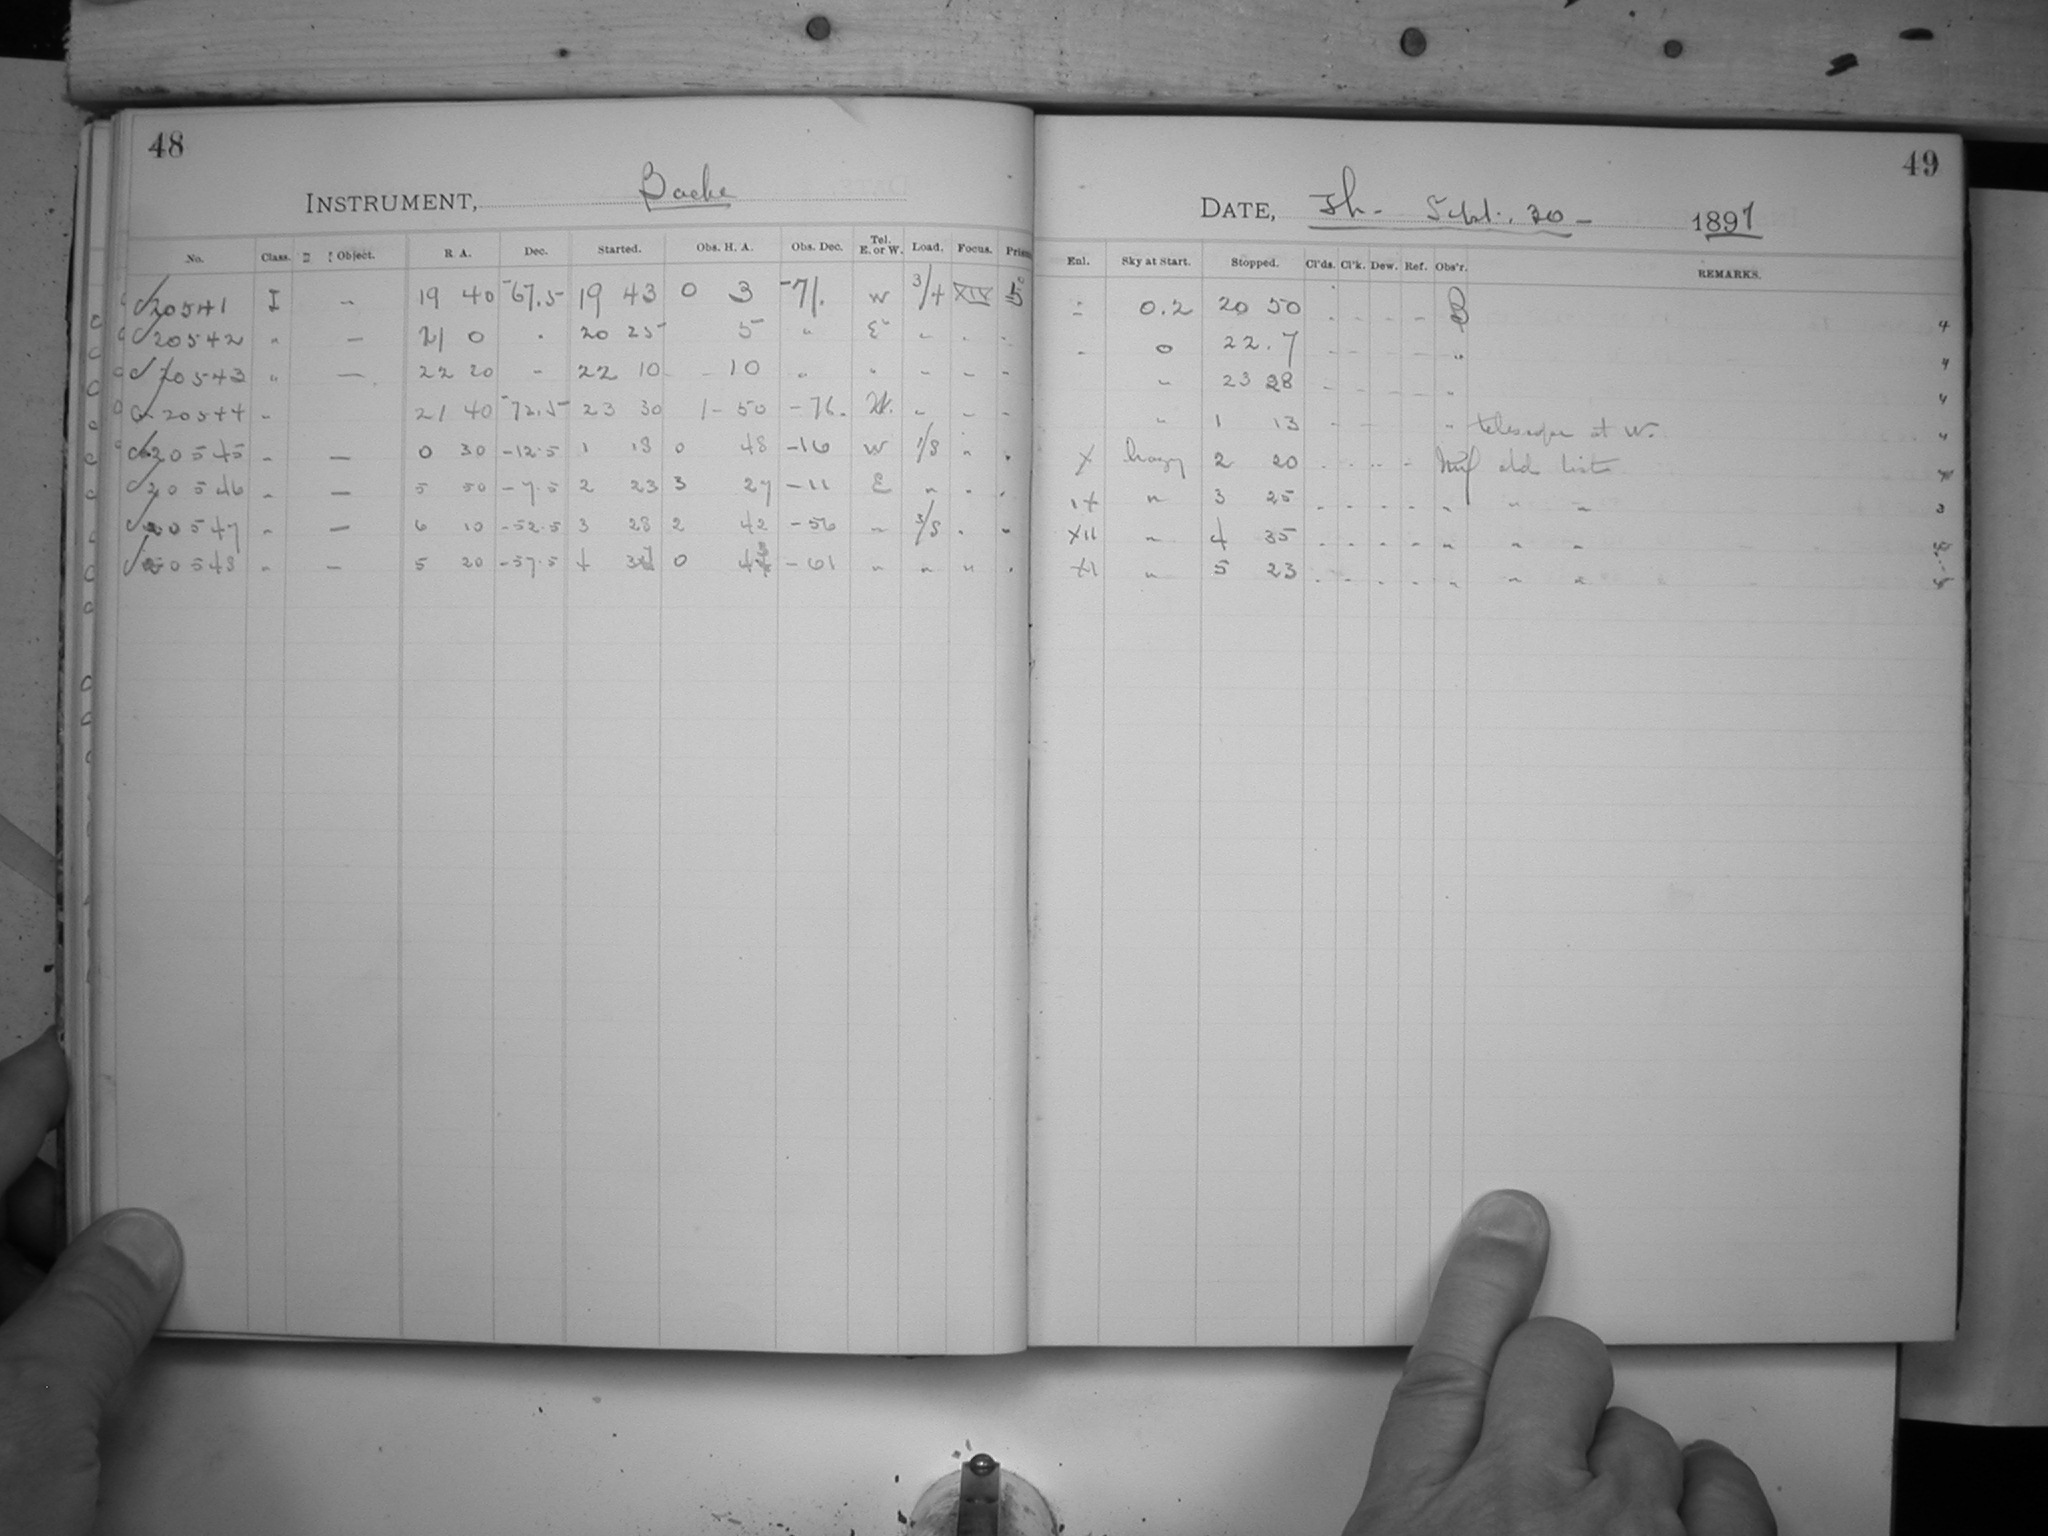 48
INSTRUMENT, Bache
No. Class. Object. R A. Dec. Started. Obs. H. A. Obs. Dec. Tel. E. or W. Load. Focus. Prism
20541 I - 19 40 -67.5 19 43 0 3 -71. W 3/4 XIV
20542 " - 21 0 " 20 25 5 " E " " "
20543 " - 22 20 " 22 10 10 " " " " "
20544 " 21 40 -72.5 23 30 1 - 50 -76. W. " " "
20545 " - 0 30 -12.5 1 18 0 48 -16 W 1/8 " "
20546 " - 5 50 -7.5 2 23 3 27 -11 E " " "
20547 " - 6 10 -52.5 3 28 2 42 -56 " 3/8 " "
20548 " - 5 20 -57.5 4 0 -61 " " " "
49
DATE, Th. Sept. 30 - 1897
Enl. Sky at Start. Stopped. Cl'ds. Cl'k. Dew. Ref. Obs'r. REMARKS.
0.2 20 50 - - - - B 4
- 0 22.7 - - - - " 4
" 23 28 - - - - " 4
" 1 13 " telescope at W. 4
X hazy 2 20 " " " " old list
IX " 3 25 " " " " " " " 3
XII " 4 35 " " " " " " "
XI " 5 23 " " " " " " "